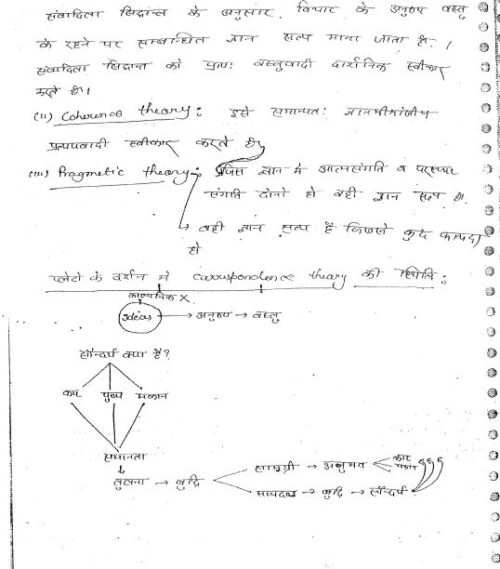 संवादिता सिद्धान्त के अनुसार, विचार के अनुरूप वस्तु
के रहने पर सम्बन्धित ज्ञान सत्य माना जाता है। /
संवादिता सिद्धान्त को प्रायः वस्तुवादी दार्शनिक स्वीकार
करते हैं।
(ii) Coherence theory: इसे सामान्यतः ज्ञानमीमांसीय
प्रत्ययवादी स्वीकार करते हैं।
(iii) Pragmetic theory: जिस ज्ञान में आत्मसंगति व परस्पर
संगति दोनों हो वही ज्ञान सत्य है।
→ वही ज्ञान सत्य है जिससे कुछ फायदा
हो
प्लेटो के दर्शन में carruspondence theory की स्थिति:
काल्पनिक X
Ideas → अनुरूप → वस्तु
सौन्दर्य क्या है?
कार पुष्प मकान
समानता
तुलना → बुद्धि
सामग्री → अनुभव कार मकान
मापदण्ड → बुद्धि → सौन्दर्य